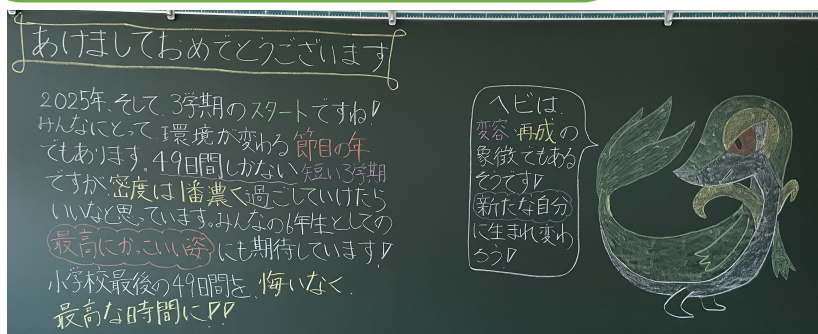 あけましておめでとうございます
2025年、そして、3学期のスタートですね!
みんなにとって環境が変わる節目の年
でもあります。49日間しかない短い3学期
ですが、密度は1番濃く過ごしていけたら
いいなと思っています。みんなの6年生としての
最高にかっこいい姿にも期待しています!
小学校最後の49日間を、悔いなく、
最高な時間に!!
ヘビは、
変容 再成の
象徴でもある
そうです!
新たな自分
に生まれ変わ
ろう!